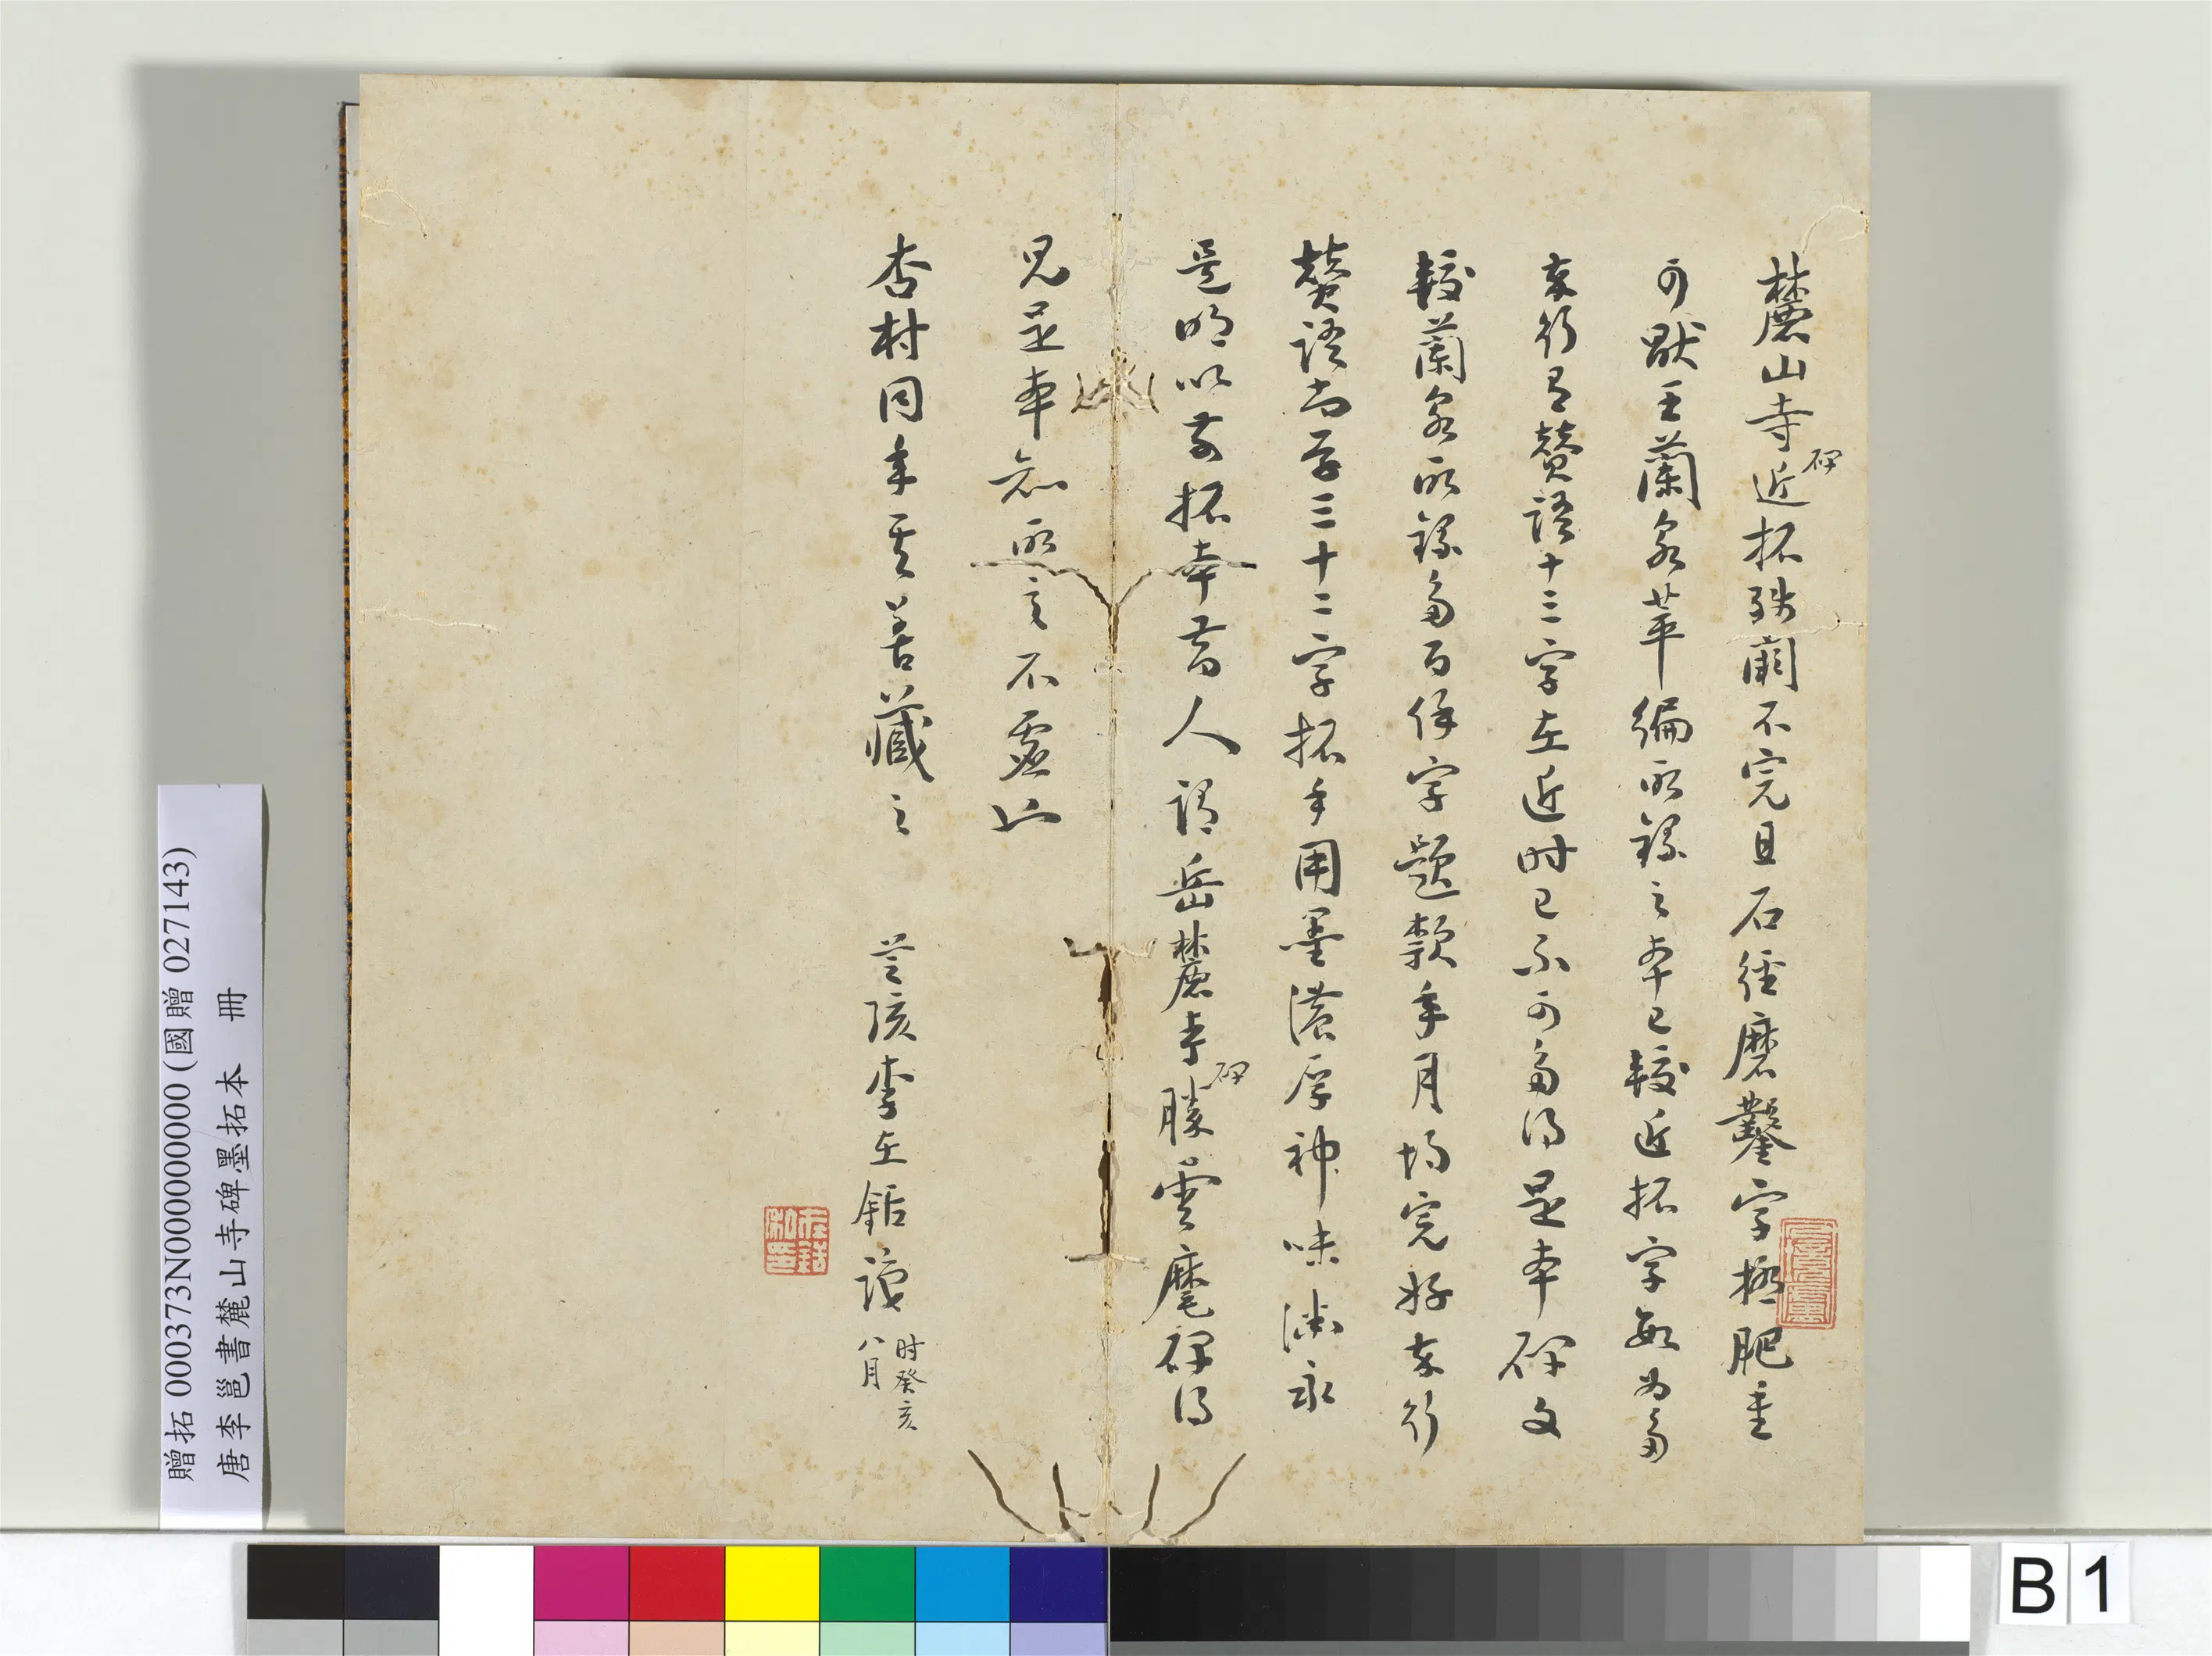 麓山寺碑近拓殘闕不完且石經磨鑿字極肥重
可厭王蘭泉萃編所錄之本已較近拓字數為多
末行有贊語十三字在近時已不可多得是本碑文
較蘭泉所錄多百餘字題款年月均完好末行
贊語尚存三十二字拓手用墨濃厚神味淵永
是明以前拓本昔人謂岳麓寺碑勝雲麾碑得
見是本知所言不虛也
杏村同年其善藏之
李在銛識
時癸亥
八月
贈拓 000373N000000000 (國贈 027143)
唐李邕書麓山寺碑墨拓本 冊
B 1